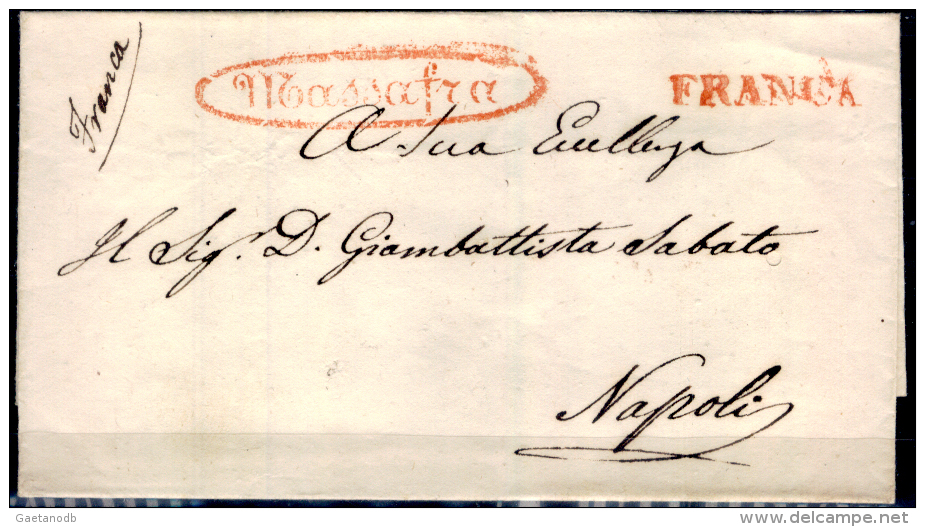 Franca
Massafra
FRANCA
A Sua Eccellenza
Il Sigr. D. Giambattista Sabato
Napoli
Gaetanodb
delcampe.net